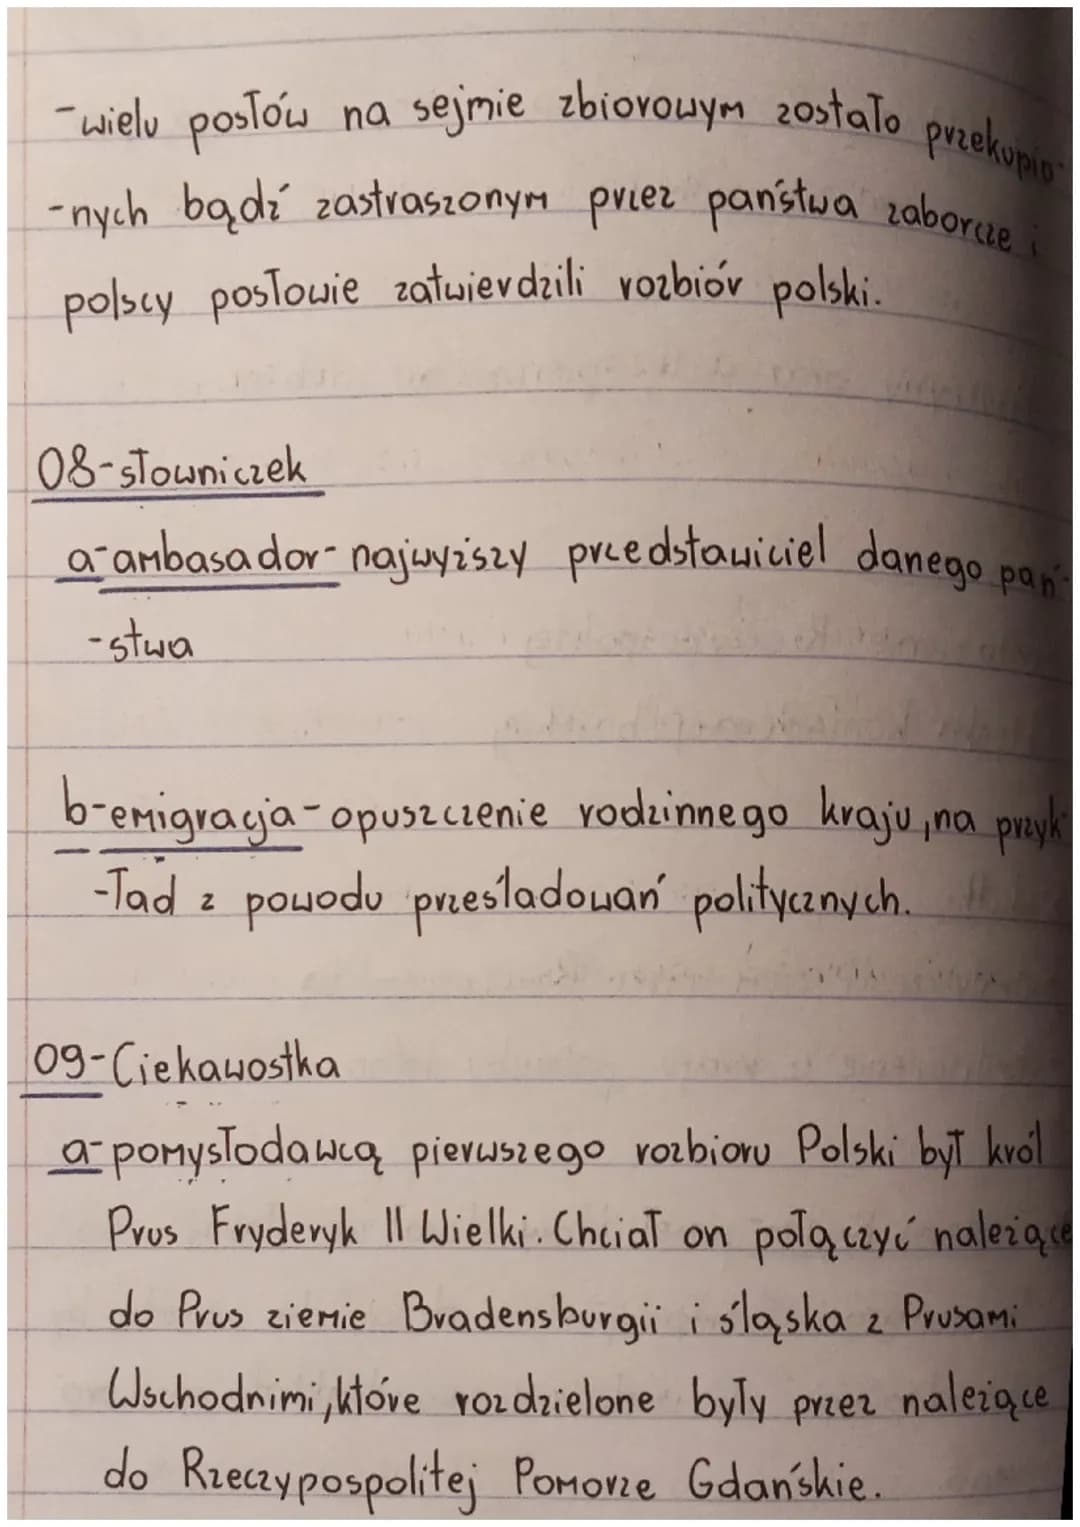 -wielu posłów na sejmie zbiorowym zostało przekupio-
-nych bądź zastraszonym przez państwa zaborcze i
polscy posłowie zatwierdzili rozbiór polski.
08-słowniczek
a-ambasador-najwyższy przedstawiciel danego pań-
-stwa
b-emigracja-opuszczenie rodzinnego kraju, na przyk-
-ład z powodu prześladowań politycznych.
09-Ciekawostka
a-pomysłodawcą pierwszego rozbioru Polski był król
Prus Fryderyk II Wielki. Chciał on połączyć należące
do Prus ziemie Bradensburgii i śląska z Prusami
Wschodnimi, które rozdzielone były przez należące
do Rzeczypospolitej Pomorze Gdańskie.